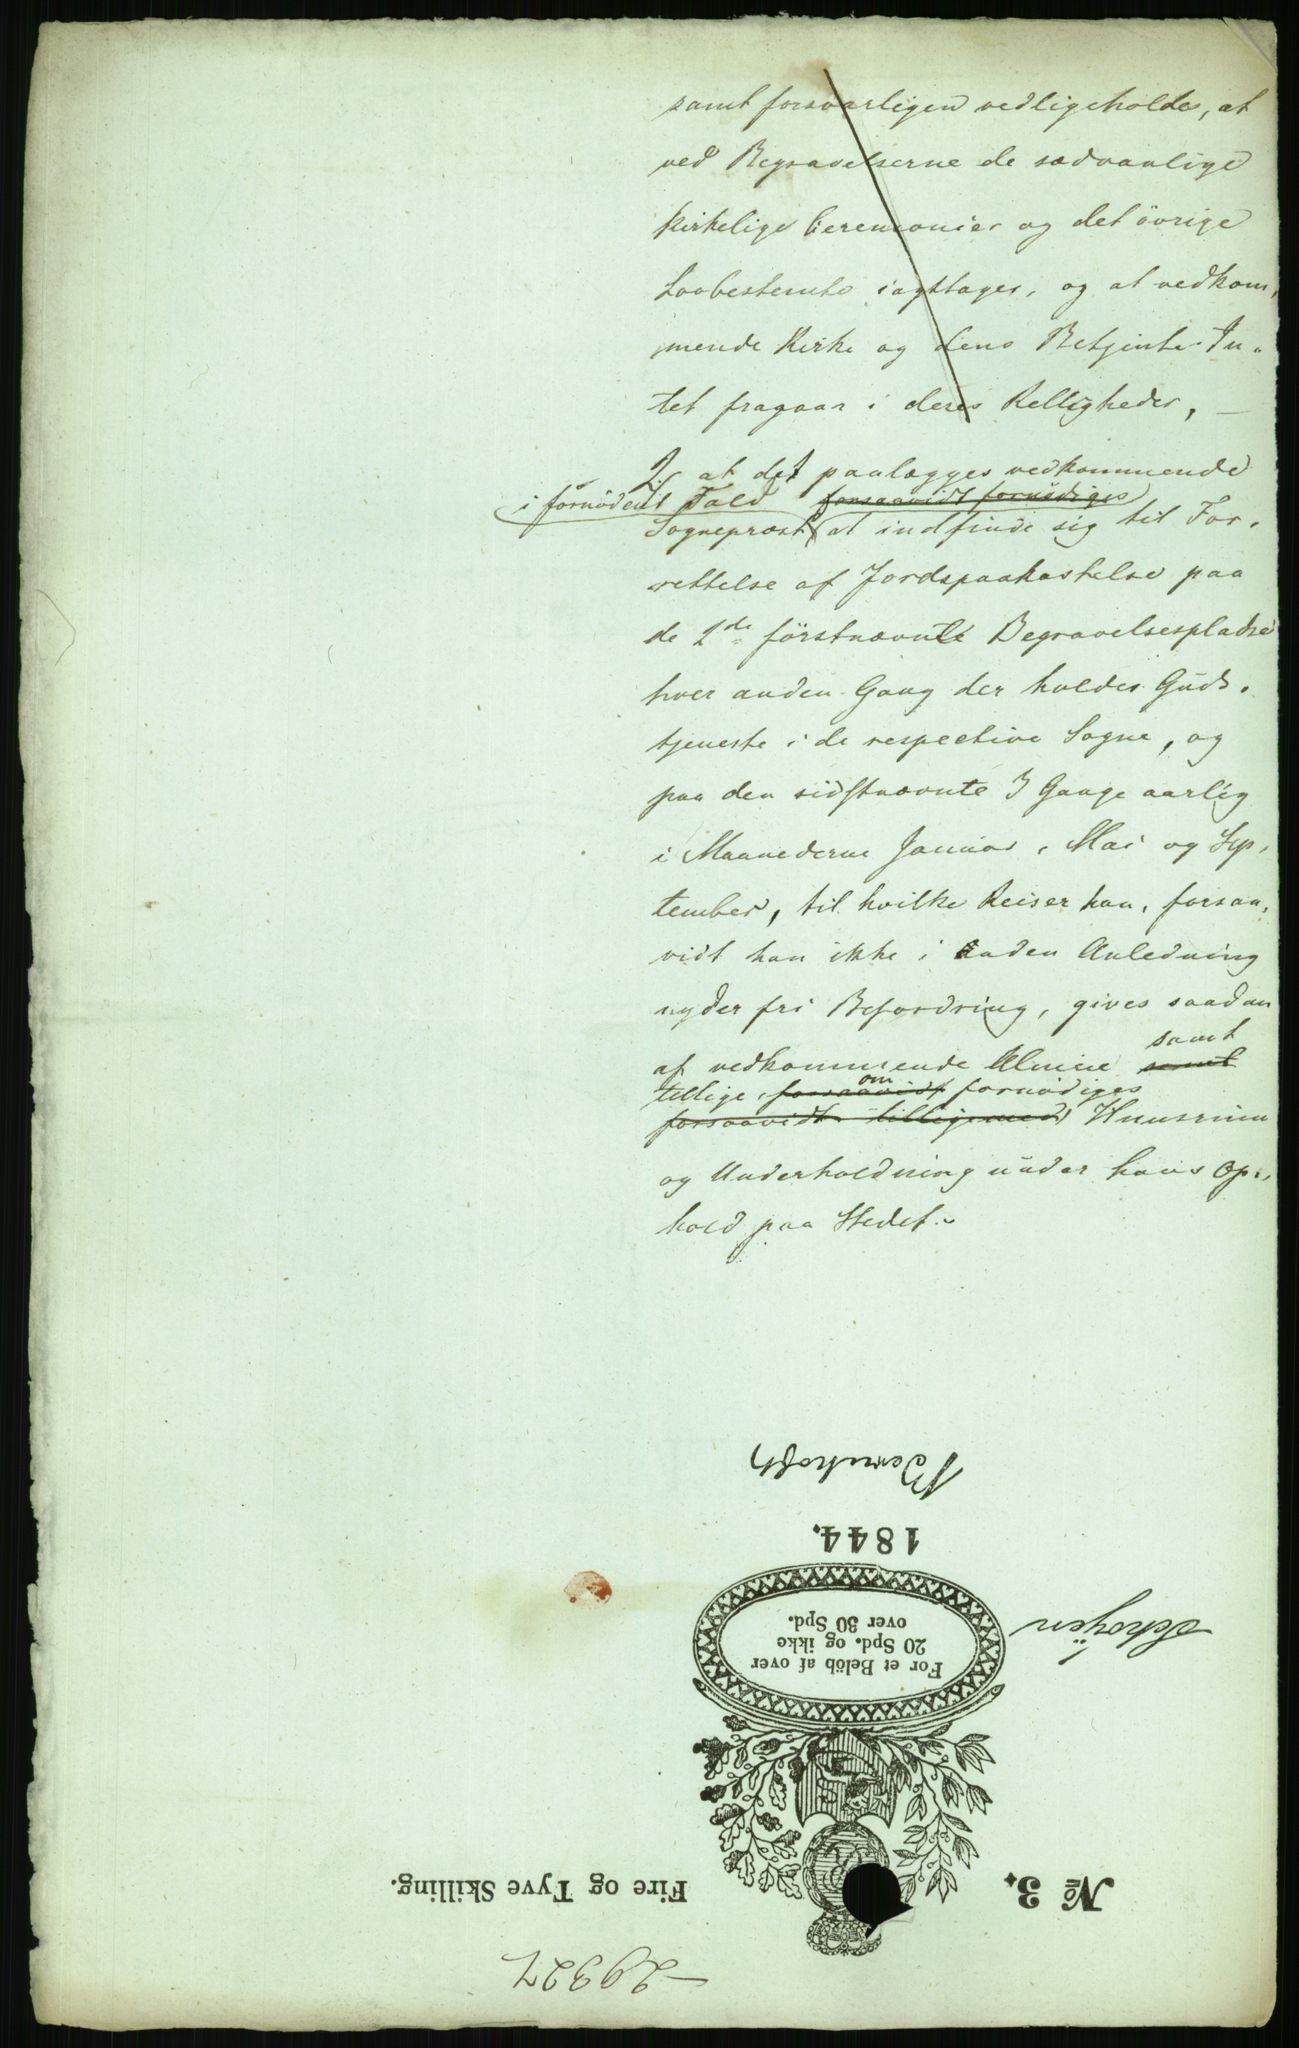 samt forsvarligen vedligeholdes, at
ved Begravelserne de sædvanlige
kirkelige Ceremonier og det övrige
Lovbestemte iagttages, og at vedkom,
mende Kirke og dens Betjente In-
tet fragaar i deres Rettigheder, —
2, at det paalægges vedkommende
i fornödent Fald forsaavidt fornödiges
Sognepræst at indfinde sig til For,
rettelse af Jordspaakastelse paa
de 2de förstnævnte Begravelsespladse
hver anden Gang der holdes Guds,
tjeneste i de respective Sogne, og
paa den sidstnævnte 3 Gange aarlig
i Maanederne Januar, Mai og Sep,
tember, til hvilke Reiser han, forsaa,
vidt han ikke i anden Anledning
nyder fri Befordring, gives saadan
samt
af vedkommende Almue samt
tillige, forsaavidt om fornödiges
forsaavidt tilligemed Huusrum
og Underholdning under hans Op,
hold paa Stedet.
1844.
Schøyen
For et Belöb af over
20 Spd. og ikke
over 30 Spd.
№ 3.
Fire og Tyve Skilling.
29327